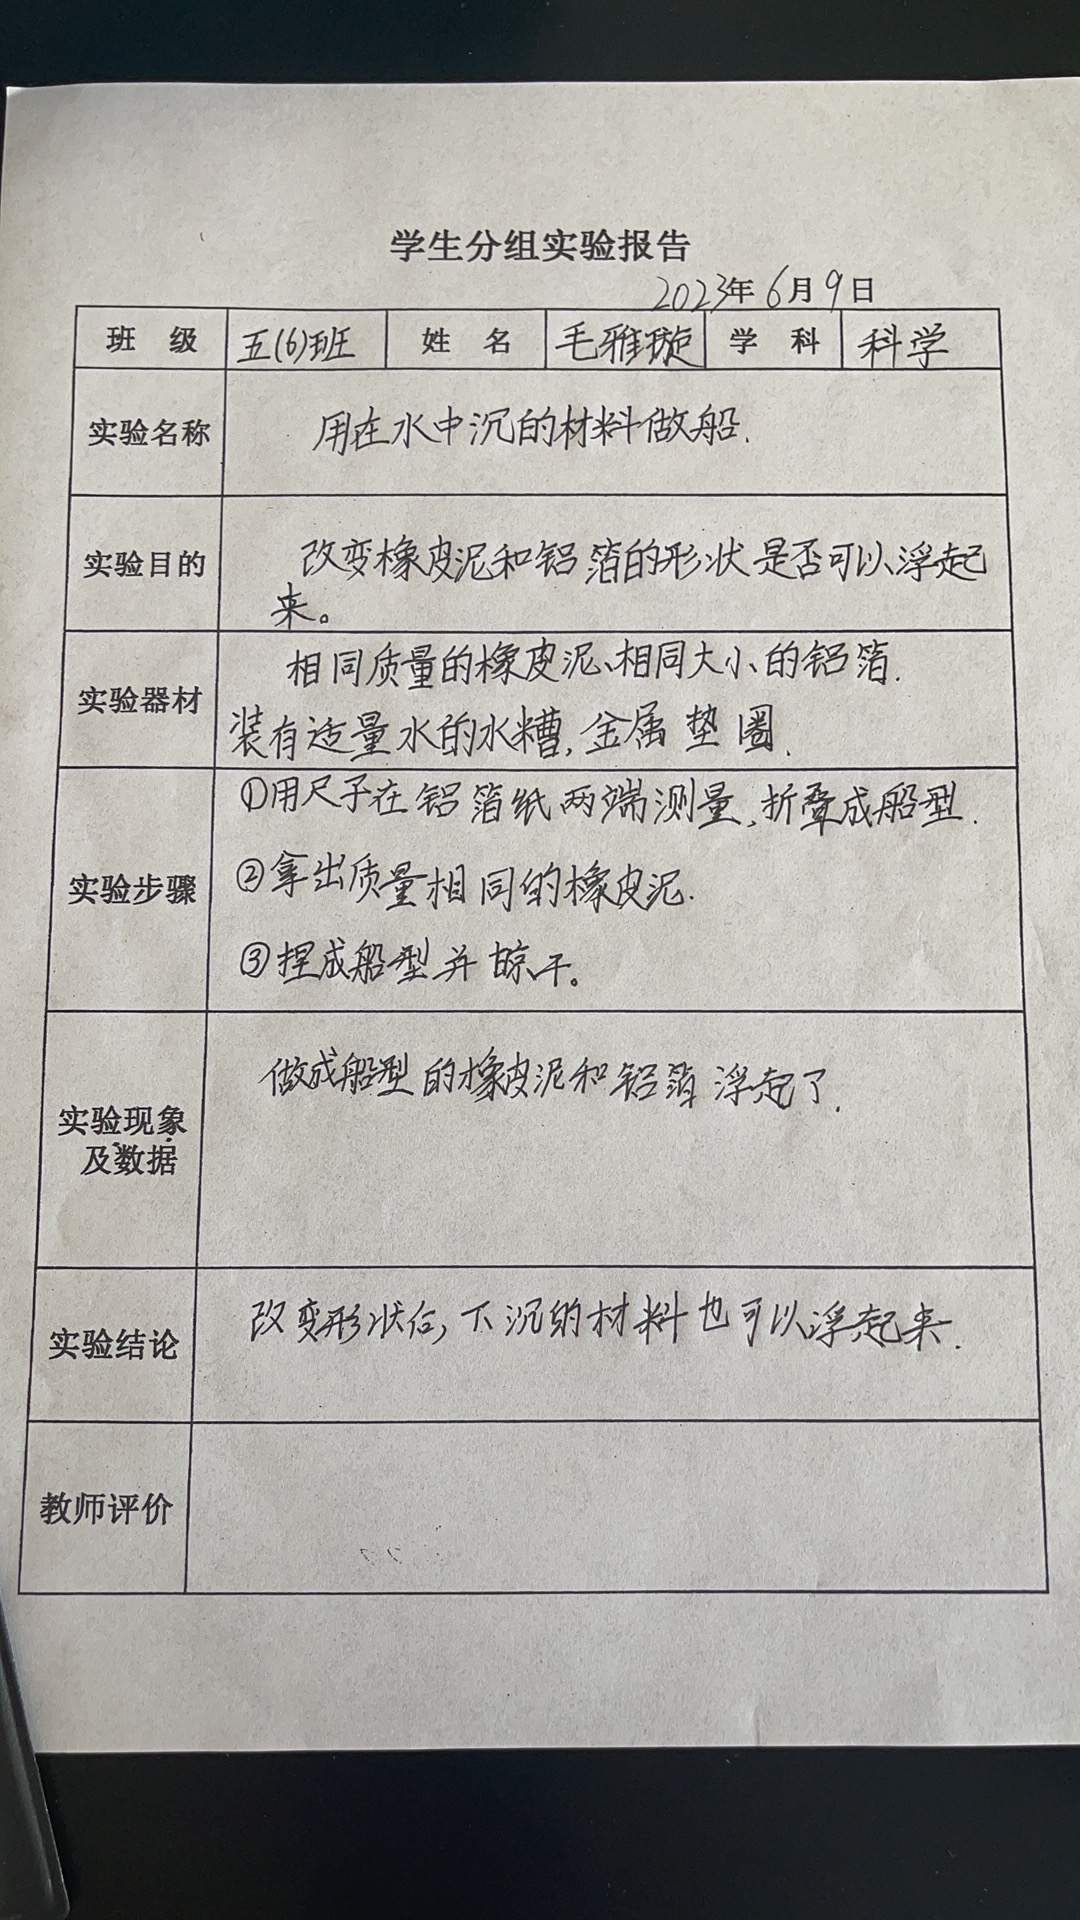 学生分组实验报告
2023年6月9日
班 级 五(6)班 姓 名 毛雅璇 学 科 科学
实验名称 用在水中沉的材料做船.
实验目的 改变橡皮泥和铝箔的形状是否可以浮起
来。
实验器材 相同质量的橡皮泥、相同大小的铝箔.
装有适量水的水槽,金属垫圈.
实验步骤 ①用尺子在铝箔纸两端测量,折叠成船型.
②拿出质量相同的橡皮泥.
③捏成船型并晾干。
实验现象
及数据 做成船型的橡皮泥和铝箔浮起了.
实验结论 改变形状后,下沉的材料也可以浮起来.
教师评价